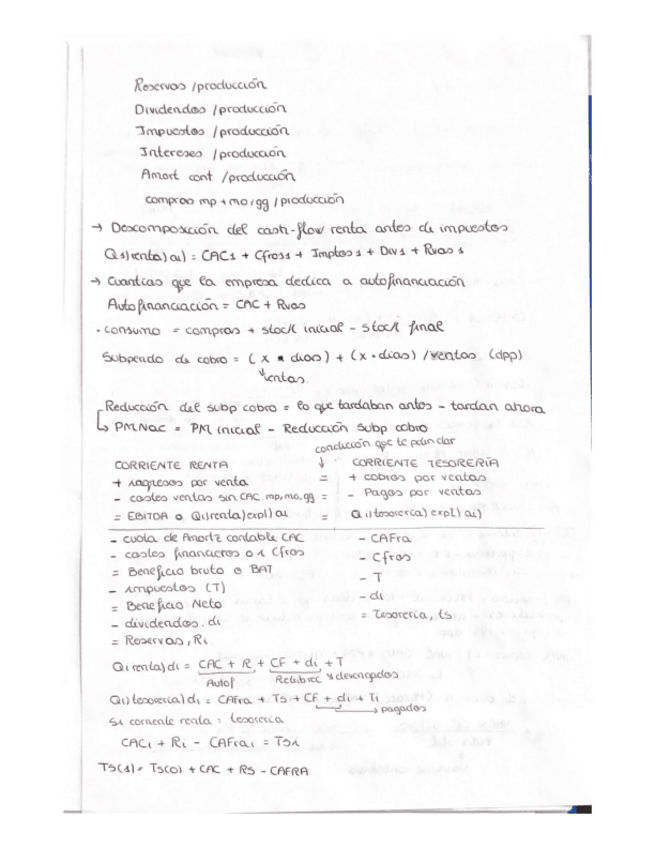 Reservas /producción
Dividendos /producción
Impuestos /producción
Intereses /producción
Amort cont /producción
compras mp + mo, gg /producción
→ Descomposición del cash-flow renta antes de impuestos
Q1)renta)ai) = CAC1 + Cfros1 + Imptos1 + Div1 + Rvas1
→ Cuantías que la empresa dedica a autofinanciación
Autofinanciación = CAC + Rvas
· consumo = compras + stock inicial - stock final
Subperiodo de cobro = ( x · dias) + (x · dias) / ventas (dpp)
ventas
Reducción del subp cobro = lo que tardaban antes - tardan ahora
↳ PMNac = PM inicial - Reducción subp cobro
condición que te puen dar
CORRIENTE RENTA ↓ CORRIENTE TESORERÍA
+ ingresos por venta = + cobros por ventas
- costes ventas sin CAC. mp, mo, gg = - Pagos por ventas
= EBITDA o Q1)renta)expl)ai = Q1)tesoreria) expl) ai)
- cuota de Amortz contable CAC - CAFra
- costes financieros o i Cfros - Cfros
= Beneficio bruto o BAT - T
- impuestos (T) - di
= Beneficio Neto = Tesorería, ts
- dividendos. di
= Reservas, Ri
Qi renta)di = CAC + R + CF + di + T
Autof Retribrec y devengados
Q1)tesoreria)di = CAFra + TS + CF + di + Ti
→ pagados
Si corriente renta = tesorería
CACi + Ri - CAFrai = TSi
TS(1) = TS(0) + CAC + RS - CAFRA